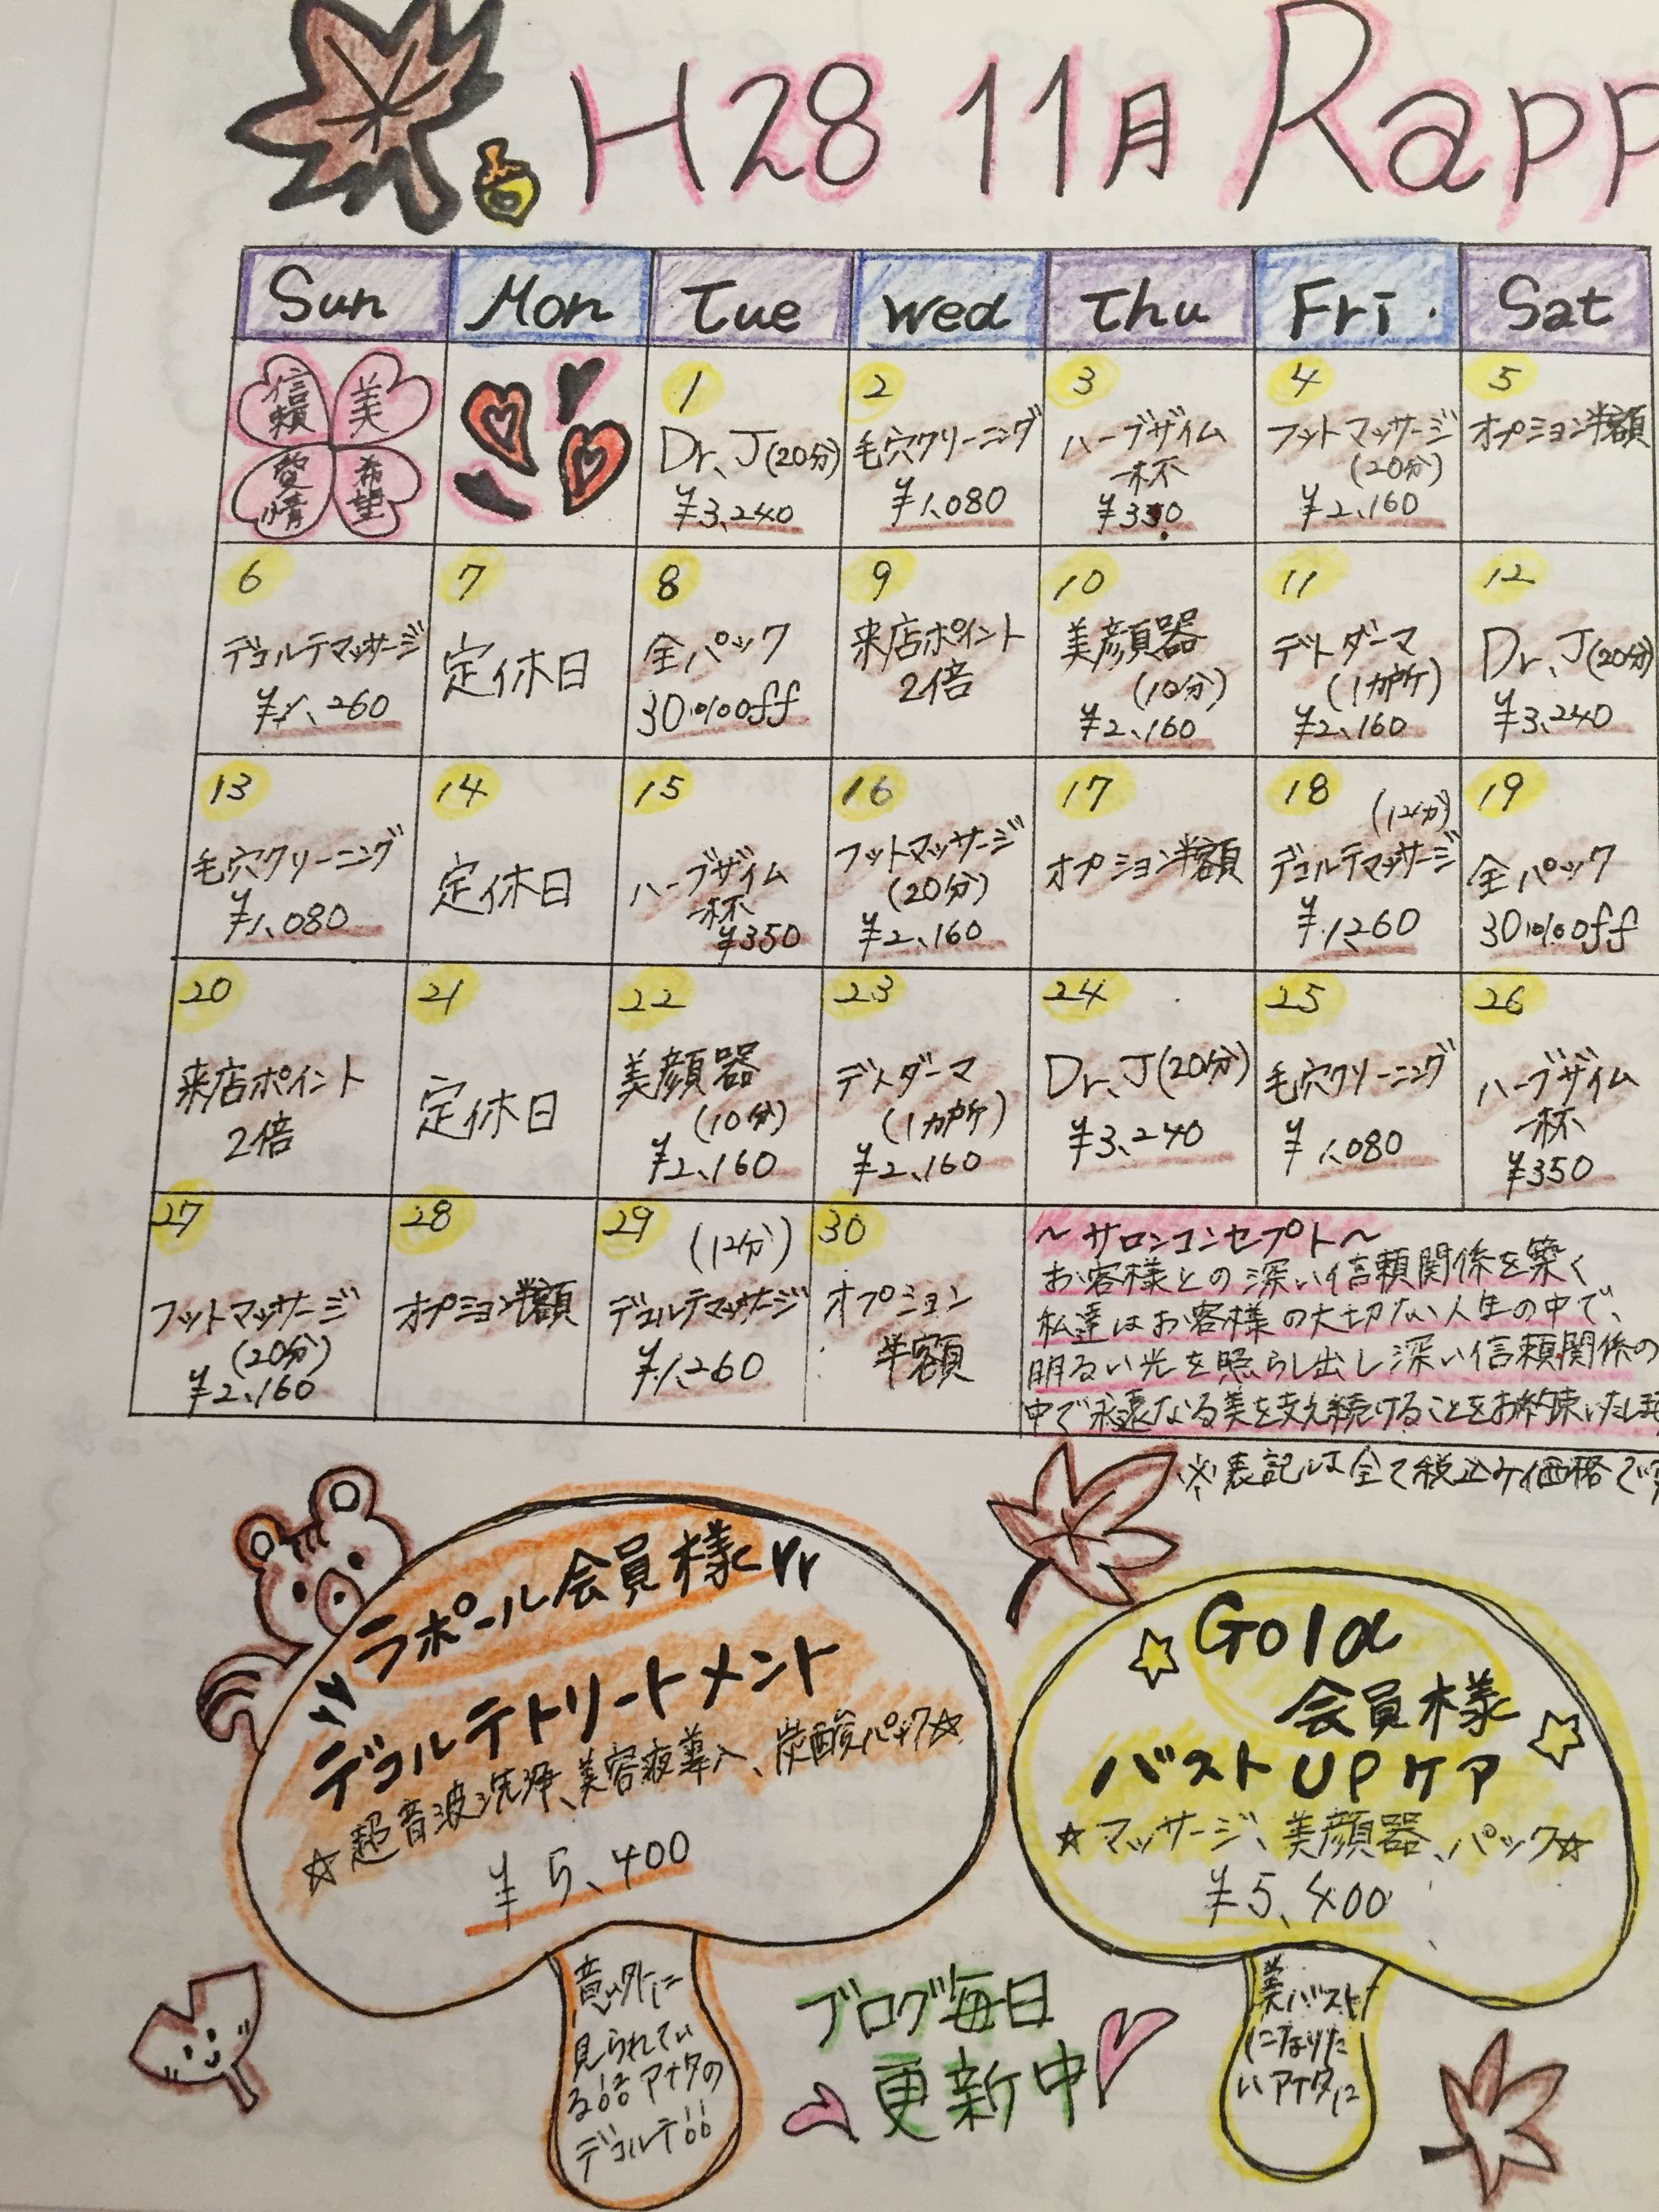 H28 11月 Rapp
Sun Mon Tue Wed Thu Fri. Sat
信頼 美
愛情 希望
1
Dr、J(20分)
¥3,240
2
毛穴クリーニング
¥1,080
3
ハーブザイム
一杯
¥350
4
フットマッサージ
(20分)
¥2,160
5
オプション半額
6
デコルテマッサージ
¥1,260
7
定休日
8
全パック
30%off
9
来店ポイント
2倍
10
美顔器
(10分)
¥2,160
11
デトダーマ
(1カ所)
¥2,160
12
Dr、J(20分)
¥3,240
13
毛穴クリーニング
¥1,080
14
定休日
15
ハーブザイム
一杯
¥350
16
フットマッサージ
(20分)
¥2,160
17
オプション半額
18 (12分)
デコルテマッサージ
¥1,260
19
全パック
30%off
20
来店ポイント
2倍
21
定休日
22
美顔器
(10分)
¥2,160
23
デトダーマ
(1カ所)
¥2,160
24
Dr、J(20分)
¥3,240
25
毛穴クリーニング
¥1,080
26
ハーブザイム
一杯
¥350
27
フットマッサージ
(20分)
¥2,160
28
オプション半額
29 (12分)
デコルテマッサージ
¥1,260
30
オプション
半額
～サロンコンセプト～
お客様との深い信頼関係を築く
私達はお客様の大切な人生の中で、
明るい光を照らし出し深い信頼関係の
中で永遠なる美を支え続けることをお約束いたしま
※表記は全て税込み価格で
ラポール会員様
デコルテトリートメント
☆超音波洗浄、美容液導入、炭酸パック☆
¥5,400
意外に
見られてい
る!!アナタの
デコルテ!!
Gold
会員様
バストUPケア
☆マッサージ、美顔器、パック☆
¥5,400
美バスト
になりた
いアナタに
ブログ毎日
更新中